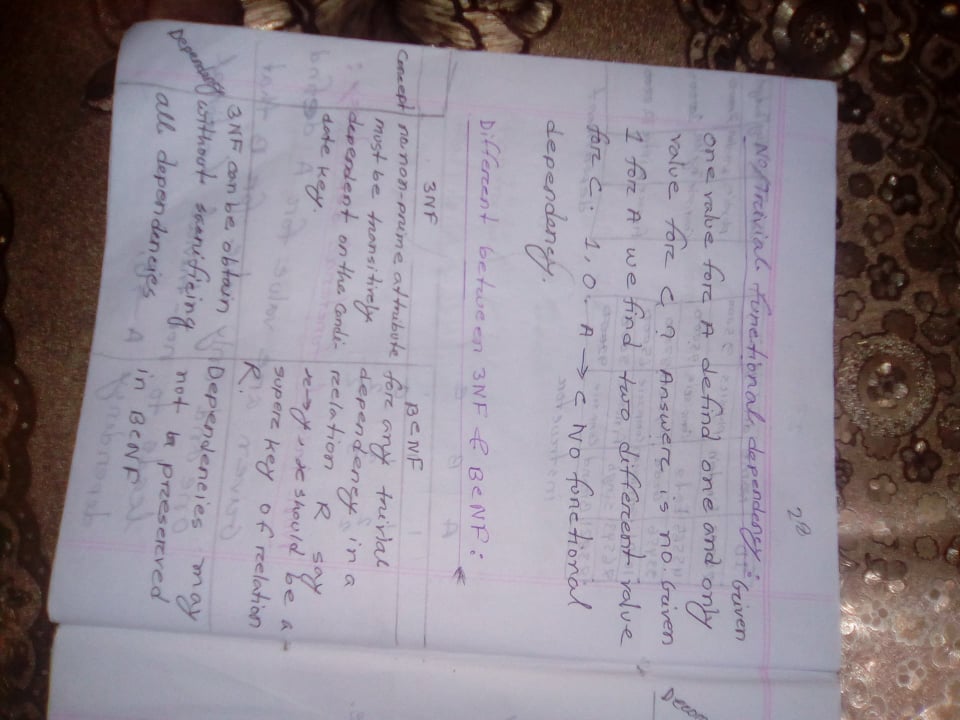 28
No/Trivial functional dependency: Given
one value forc A defind one and only
value forc C ? Answerc is no. Given
1 for A we find two differcent value
forc C. 1, 0. A → C No functional
dependency.
Differcent between 3NF & BCNF:
3NF
BCNF
Concept
no non-prime attribute
must be transitively
dependent on the candi-
date key.
forc any trivial
dependency in a
rcelation R say
x→y, x should be a
superc key of rcelation
R.
Dependency
3NF can be obtain
without sacrificing
all dependencies
Dependencies may
not be prcesercved
in BCNF
Decom